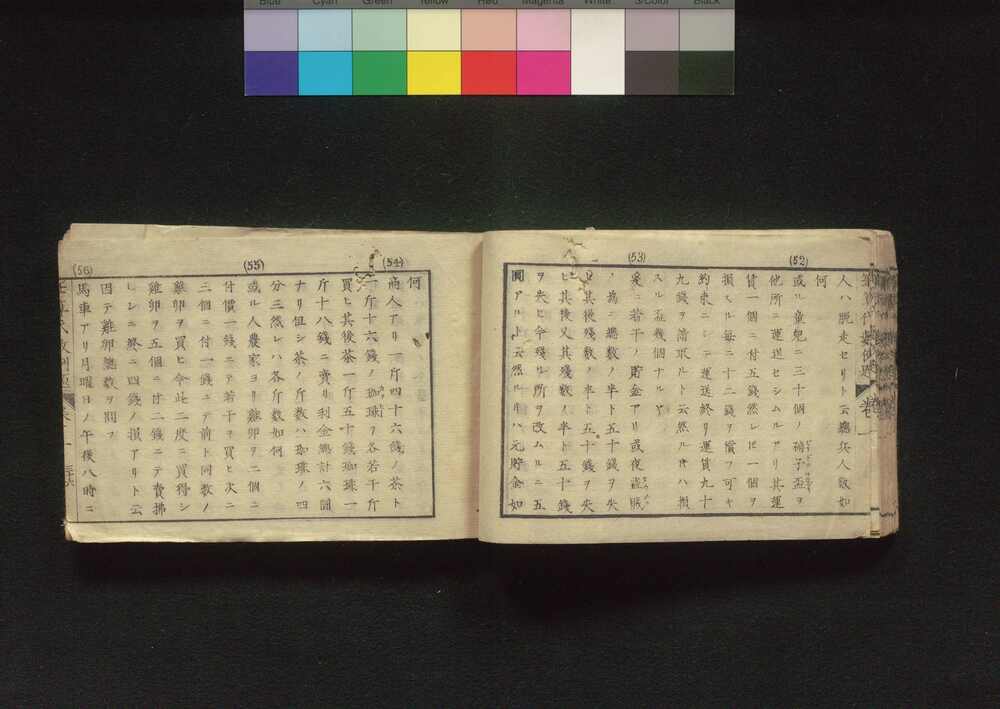 Blue Cyan Green Yellow Red Magenta White 3/Color Black
人ハ脱走セリト云總兵人数如
何
(52)
或ル童兒ニ三十個ノ硝子盃ヲ
他所ニ運送セシムルアリ其運
賃一個ニ付五錢然レ𪜈一個ヲ
損スル毎ニ十二錢ヲ償フ可キ
約束ニシテ運送終リ運賃九十
九錢ヲ請取ルト云然ル時ハ損
スル盃幾個ナルヤ
(53)
爰ニ若干ノ貯金アリ或夜盗賊
ノ為ニ總数ノ半ト五十錢ヲ失
ヒ其後残数ノ半ト五十錢ヲ失
ヒ其後又其残数ノ半ト五十錢
ヲ失ヒ今残ル所ヲ改ムルニ五
圓アルト云然ルトキハ元貯金如
何
(54)
商人アリ一斤四十六錢ノ茶ト
一斤十六錢ノ珈琲ヲ各若干斤
買ヒ其後茶一斤五十錢珈琲一
斤十八錢ニ賣リ利金總計六圓
ナリ但シ茶ノ斤数ハ珈琲ノ四
分三然レハ各斤数如何
(55)
或ル人農家ヨリ雞卵ヲ二個ニ
付價一錢ニテ若干ヲ買ヒ次ニ
三個ニ付一錢ニテ前ト同数ノ
雞卵ヲ買ヒ今此二度ニ買得シ
雞卵ヲ五個ニ付二錢ニテ賣拂
レシニ終ニ四錢ノ損アリト云
因テ雞卵總数ヲ問フ
(56)
馬車アリ月曜日ノ午後八時ニ